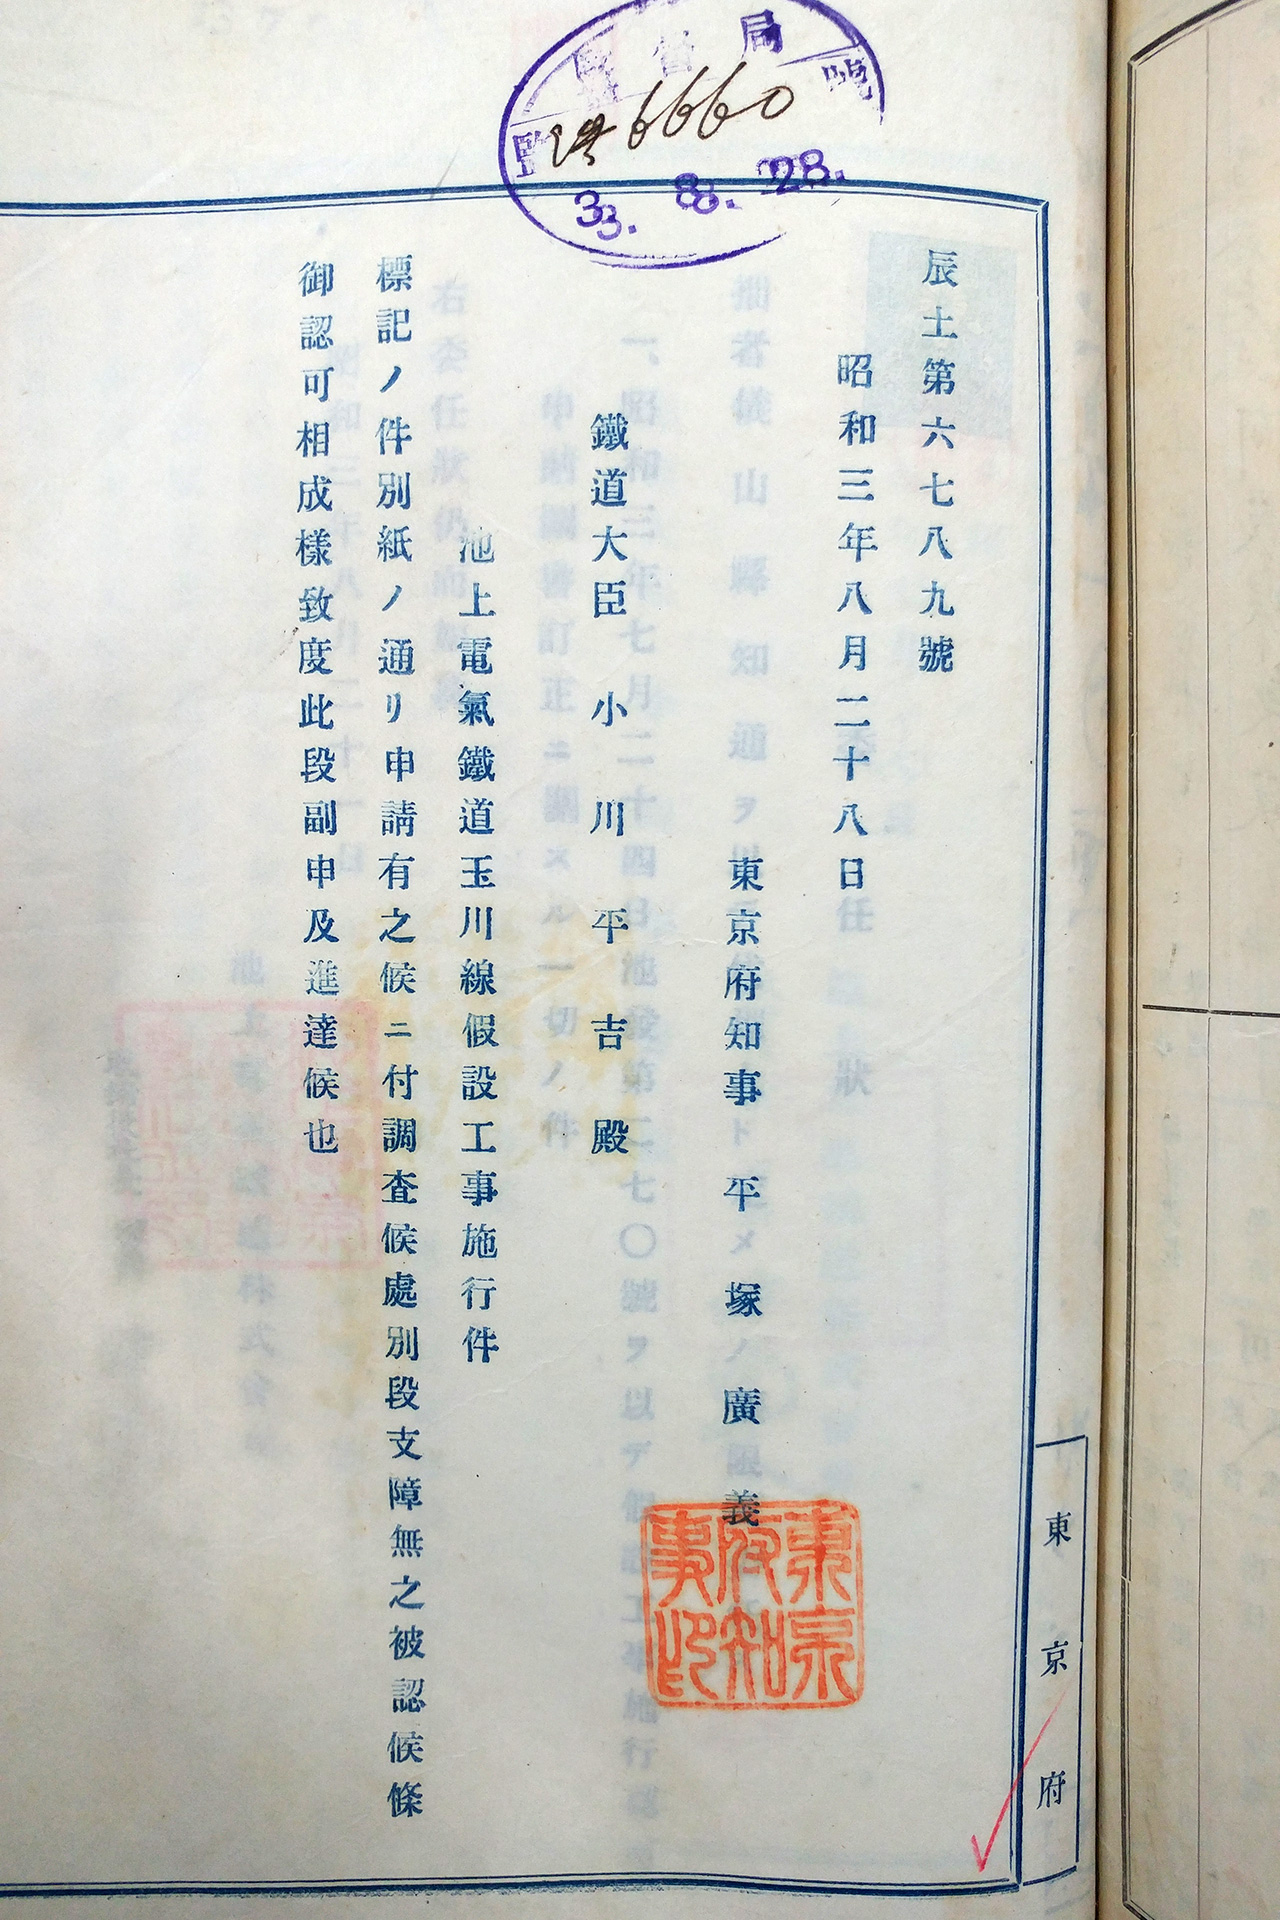 監督局
6660
33. 8. 28.
辰土第六七八九號
昭和三年八月二十八日
東京府知事 平塚廣義
東京府知事印
鐵道大臣 小川平吉殿
池上電氣鐵道玉川線假設工事施行件
標記ノ件別紙ノ通リ申請有之候ニ付調査候處別段支障無之被認候條
御認可相成樣致度此段副申及進達候也
東京府